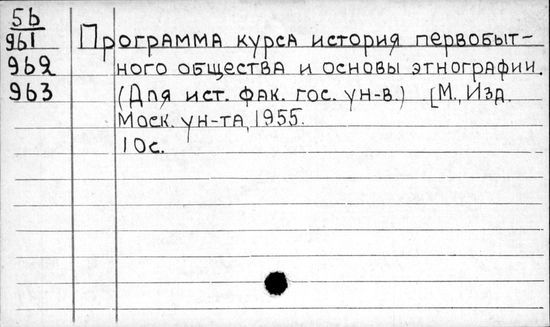 5b
961
962
963
Программа курса история первобыт-
ного общества и основы этнографии.
(Для ист. фак. гос. ун-в.) [М., Изд.
Моск. ун-та, 1955.
10с.